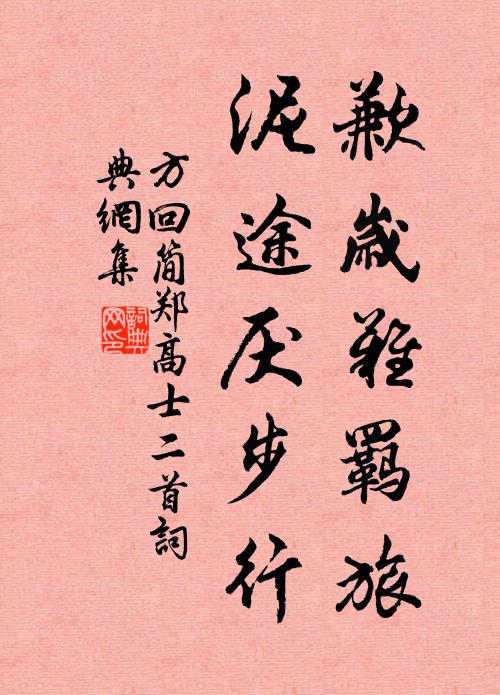 歉歲難羈旅
泥途厌步行
方回簡郑高士二首詞
典網集
詞典
网印